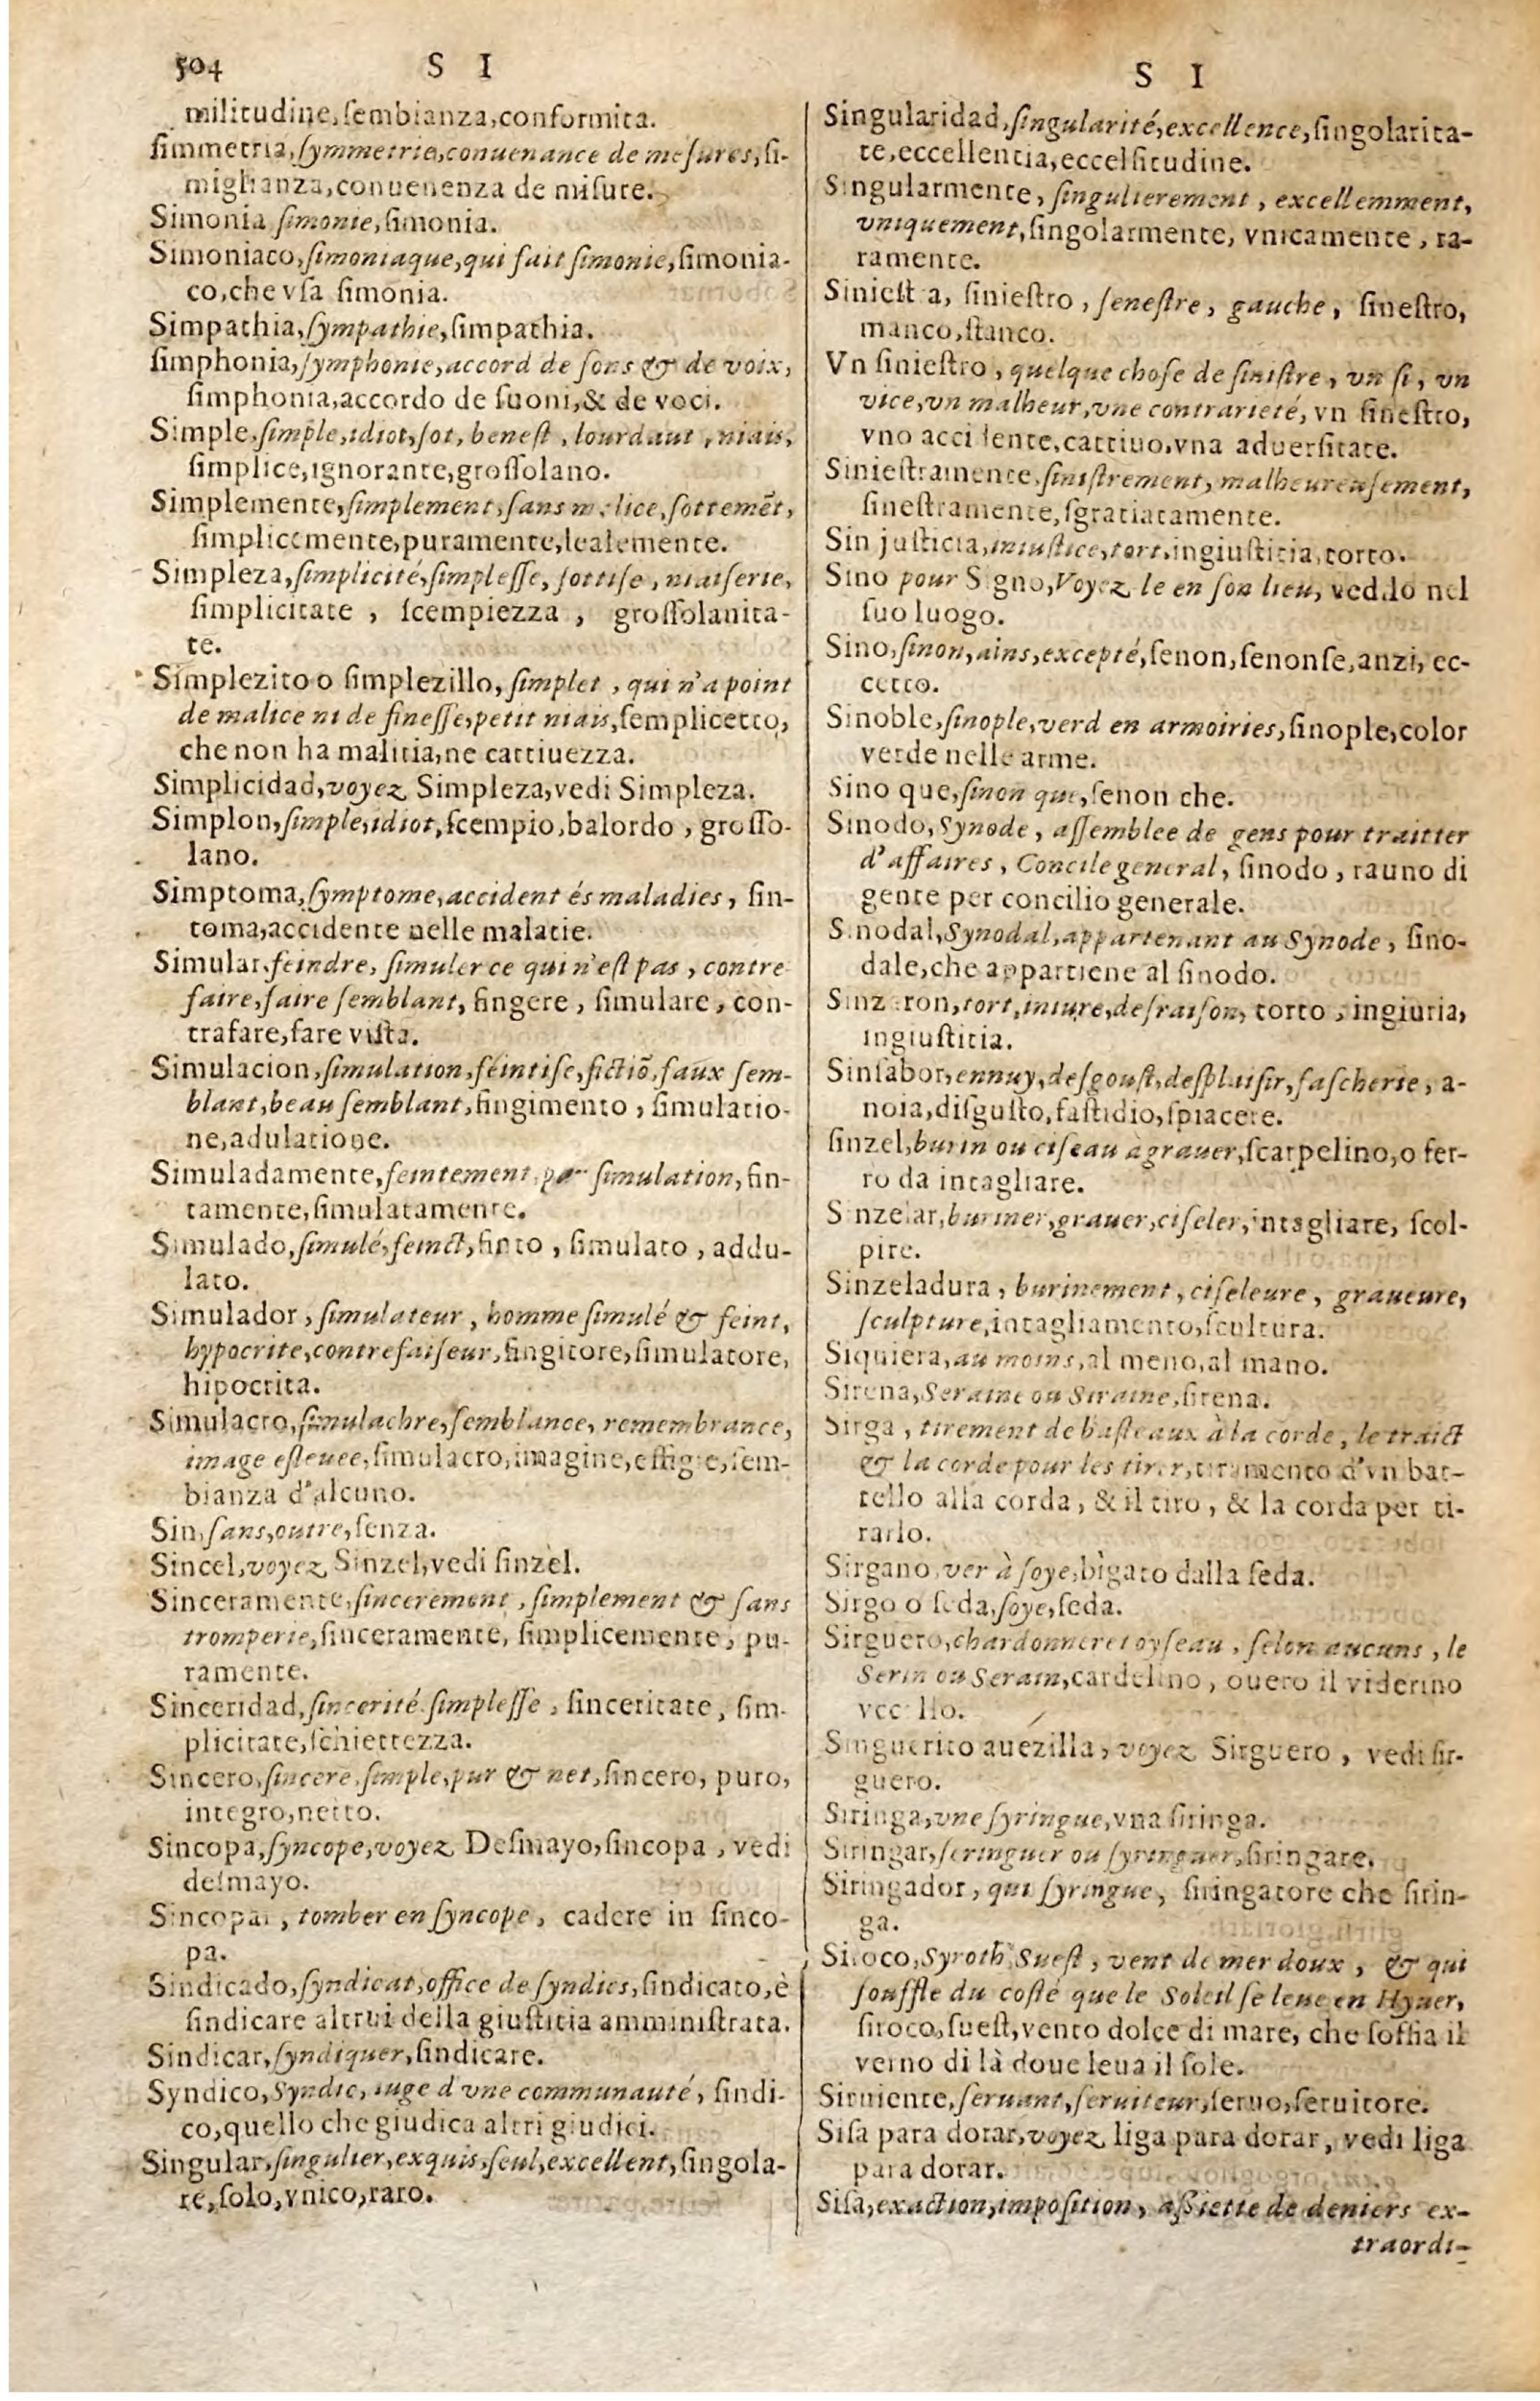 504 S I
militudine,ſembianza,conformita.
ſimmetria,ſymmetrie,conuenance de meſures,ſi-
miglianza,conuenenza de miſure.
Simonia ſimonie,ſimonia.
Simoniaco,ſimoniaque,qui fait ſimonie,ſimonia-
co,che vſa ſimonia.
Simpathia,ſympathie,ſimpathia.
ſimphonia,ſymphonie,accord de ſons & de voix,
ſimphonia,accordo de ſuoni,& de voci.
Simple,ſimple,idiot,ſot, beneſt , lourdaut , niais,
ſimplice,ignorante,groſſolano.
Simplemente,ſimplement,ſans malice,ſottemēt,
ſimplicemente,puramente,lealemente.
Simpleza,ſimplicité,ſimpleſſe, ſottiſe , niaiſerie,
ſimplicitate , ſcempiezza , groſſolanita-
te.
Simplezito o ſimplezillo, ſimplet , qui n'a point
de malice ni de fineſſe,petit niais,ſemplicetto,
che non ha malitia,ne cattiuezza.
Simplicidad,voyez Simpleza,vedi Simpleza.
Simplon,ſimple,idiot,ſcempio,balordo , groſſo-
lano.
Simptoma,ſymptome,accident és maladies, ſin-
toma,accidente nelle malatie.
Simular,feindre, ſimuler ce qui n'eſt pas , contre
faire,faire ſemblant, fingere , ſimulare , con-
trafare,fare viſta.
Simulacion,ſimulation,feintiſe,fictiō,faux ſem-
blant,beau ſemblant,fingimento , ſimulatio-
ne,adulatione.
Simuladamente,feintement,par ſimulation,fin-
tamente,ſimulatamente.
Simulado,ſimulé,feinct,finto , ſimulato , addu-
lato.
Simulador , ſimulateur , homme ſimulé & feint,
hypocrite,contrefaiſeur,fingitore,ſimulatore,
hipocrita.
Simulacro,ſimulachre,ſemblance, remembrance,
image eſleuee,ſimulacro,imagine,effigie,ſem-
bianza d'alcuno.
Sin,ſans,outre,ſenza.
Sincel,voyez Sinzel,vedi ſinzel.
Sinceramente,ſincerement , ſimplement & ſans
tromperie,ſinceramente, ſimplicemente, pu-
ramente.
Sinceridad,ſincerité ſimpleſſe , ſinceritate, ſim-
plicitate,ſchiettezza.
Sincero,ſincere,ſimple,pur & net,ſincero, puro,
integro,netto.
Sincopa,ſyncope,voyez Deſmayo,ſincopa , vedi
deſmayo.
Sincopar , tomber en ſyncope , cadere in ſinco-
pa.
Sindicado,ſyndicat,office de ſyndics,ſindicato,è
ſindicare altrui della giuſtitia amminiſtrata.
Sindicar,ſyndiquer,ſindicare.
Syndico,Syndic, iuge d'vne communauté, ſindi-
co,quello che giudica altri giudici.
Singular,ſingulier,exquis,ſeul,excellent,ſingola-
re,ſolo,vnico,raro.
S I
Singularidad,ſingularité,excellence,ſingolarita-
te,eccellentia,eccelſitudine.
Singularmente, ſingulierement , excellemment,
vniquement,ſingolarmente, vnicamente , ra-
ramente.
Sinieſtra, ſinieſtro , ſeneſtre , gauche , ſineſtro,
manco,ſtanco.
Vn ſinieſtro , quelque choſe de ſiniſtre , vn ſi, vn
vice,vn malheur,vne contrarieté, vn ſineſtro,
vno accidente,cattiuo,vna aduerſitate.
Sinieſtramente,ſiniſtrement, malheureuſement,
ſineſtramente,ſgratiatamente.
Sin juſticia,iniuſtice,tort,ingiuſtitia,torto.
Sino pour Signo,Voyez le en ſon lieu, vedilo nel
ſuo luogo.
Sino,ſinon,ains,excepté,ſenon,ſenonſe,anzi, ec-
cetto.
Sinoble,ſinople,verd en armoiries,ſinople,color
verde nelle arme.
Sino que,ſinon que,ſenon che.
Sinodo,Synode , aſſemblee de gens pour traitter
d'affaires , Concile general, ſinodo , rauno di
gente per concilio generale.
Sinodal,Synodal,appartenant au Synode , ſino-
dale,che appartiene al ſinodo.
Sinzaron,tort,iniure,deſraiſon, torto , ingiuria,
ingiuſtitia.
Sinſabor,ennuy,deſgouſt,deſplaiſir,faſcherie, a-
noia,diſguſto,faſtidio,ſpiacere.
ſinzel,burin ou ciſeau à grauer,ſcarpelino,o fer-
ro da intagliare.
Sinzelar,buriner,grauer,ciſeler,intagliare, ſcol-
pire.
Sinzeladura , burinement , ciſeleure , graueure,
ſculpture,intagliamento,ſcultura.
Siquiera,au moins,al meno,al mano.
Sirena,Seraine ou Siraine,ſirena.
Sirga , tirement de baſteaux à la corde, le traict
& la corde pour les tirer,tiramento d'vn bat-
tello alla corda , & il tiro , & la corda per ti-
rarlo.
Sirgano,ver à ſoye,bigato dalla ſeda.
Sirgo o ſeda,ſoye,ſeda.
Sirguero,chardonneret oyſeau , ſelon aucuns , le
Serin ou Serain,cardelino , ouero il viderino
vccello.
Singuerito auezilla, voyez Sirguero , vedi ſir-
guero.
Siringa,vne ſyringue,vna ſiringa.
Siringar,ſeringuer ou ſyringuer,ſiringare.
Siringador , qui ſyringue, ſiringatore che ſirin-
ga.
Siroco,Syroth,Sueſt , vent de mer doux , & qui
ſouffle du coſté que le Soleil ſe leue en Hyuer,
ſiroco,ſueſt,vento dolce di mare, che ſoffia il
verno di là doue leua il ſole.
Siruiente,ſeruant,ſeruiteur,ſeruo,ſeruitore.
Siſa para dorar,voyez liga para dorar, vedi liga
para dorar.
Siſa,exaction,impoſition, aſſiette de deniers ex-
traordi-